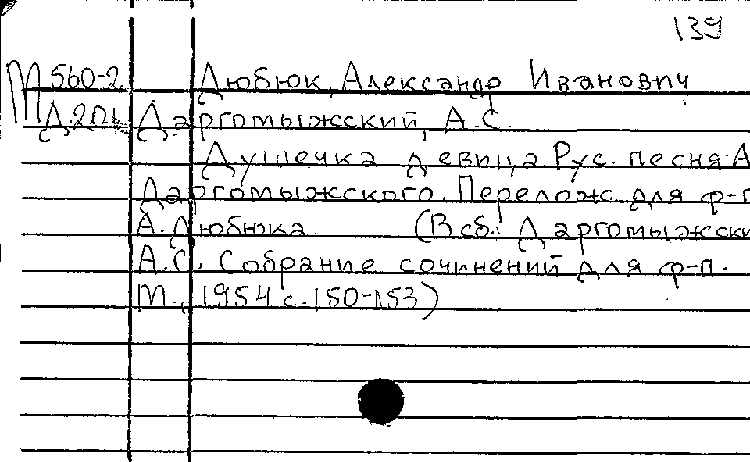 139
М 560-2 Дюбюк, Александр Иванович
Д.20 Даргомыжский, А.С.
Душечка девица Рус. песня А
Даргомыжского. Перелож. для ф-п
А. Дюбюка (В сб.: Даргомыжски
А.С. Собрание сочинений для ф-п.
М., 1954 с. 150-153)